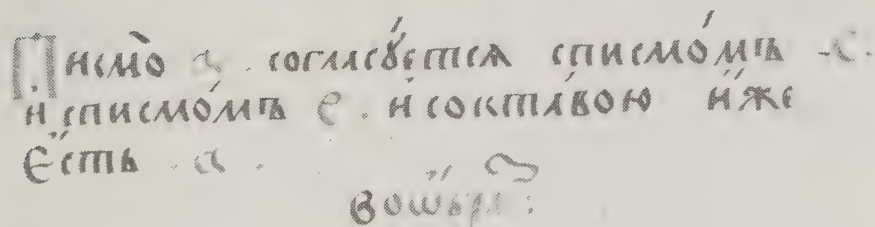 Писмо̀ а . согласꙋ́етсѧ списмо́мъ - С.
и҆ списмо́мъ е . и҆ соктáвою и҆́же
Е҆́сть . а .